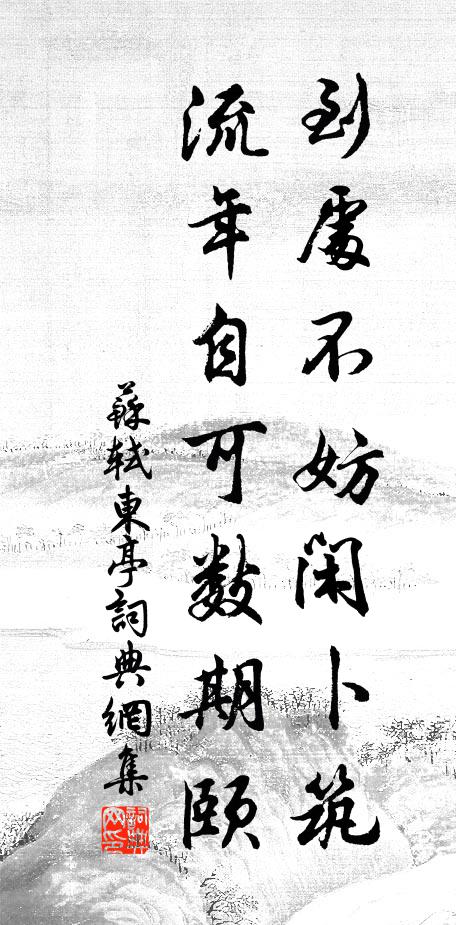 到處不妨閑卜筑
流年自可數期頤
蘇軾東亭詞典網集
詞典網印